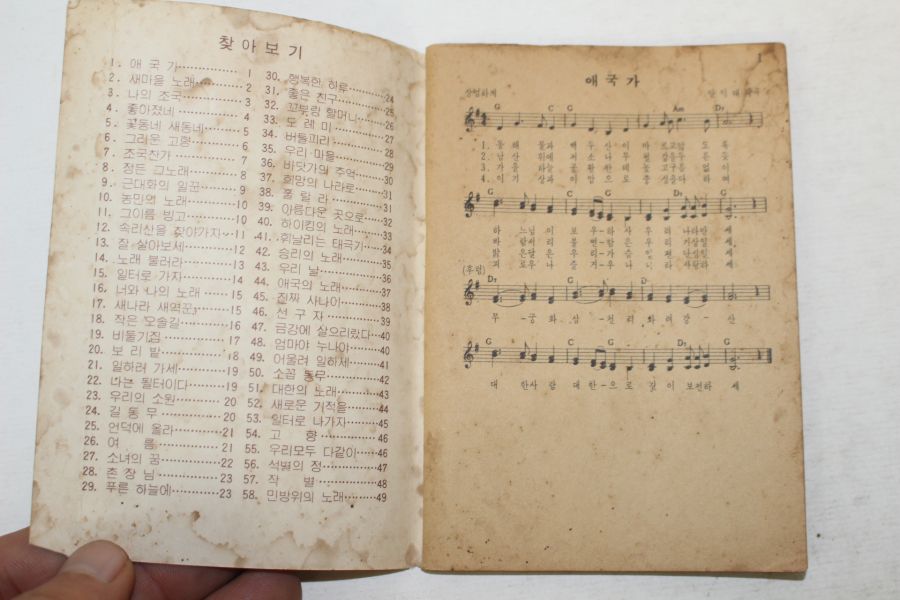 찾아보기
1. 애 국 가 1
2. 새마을 노래 2
3. 나의 조국 3
4. 좋아졌네 4
5. 꽃동네 새동네 5
6. 그리운 고향 6
7. 조국찬가 7
8. 정든 그노래 8
9. 근대화의 일꾼 9
10. 농민의 노래 10
11. 그이름 빙고 10
12. 속리산을 찾아가자 11
13. 잘 살아보세 12
14. 노래 불러라 13
15. 일터로 가자 14
16. 너와 나의 노래 15
17. 새나라 새역꾼 15
18. 작은 오솔길 16
19. 비둘기집 17
20. 보 리 밭 18
21. 일하러 가세 19
22. 나는 필터이다 19
23. 우리의 소원 20
24. 길 동 무 20
25. 언덕에 올라 21
26. 여 름 21
27. 소녀의 꿈 22
28. 촌 장 님 23
29. 푸른 하늘에 23
30. 행복한 하루 24
31. 좋은 친구 25
32. 꼬부랑 할머니 26
33. 도 레 미 27
34. 버들피리 28
35. 우리 마을 29
36. 바닷가의 추억 30
37. 희망의 나라로 31
38. 훌 릴 라 31
39. 아름다운 곳으로 32
40. 하이킹의 노래 33
41. 휘날리는 태극기 34
42. 승리의 노래 35
43. 우리 날 36
44. 애국의 노래 37
45. 진짜 사나이 38
46. 선 구 자 39
47. 금강에 살으리랐다 40
48. 엄마야 누나야 40
49. 어울려 일하세 41
50. 소꿉 동무 42
51. 대한의 노래 43
52. 새로운 기적을 44
53. 일터로 나가자 45
54. 고 향 46
55. 우리모두 다같이 46
56. 석별의 정 47
57. 작 별 48
58. 민방위의 노래 49
1
애국가
G C G Am D7
1. 동 해 물과 백 두 산 이 마 르고 닳 도 록
G C G D7 G
하 느님 이 보 우-하 사 우 리 나라만 세
(후렴)
D7 G C G D
무 - 궁화 삼 - 천리 화려강 - 산
G C G D7 G
대 한사 람 대 한-으 로 길 이 보전하 세